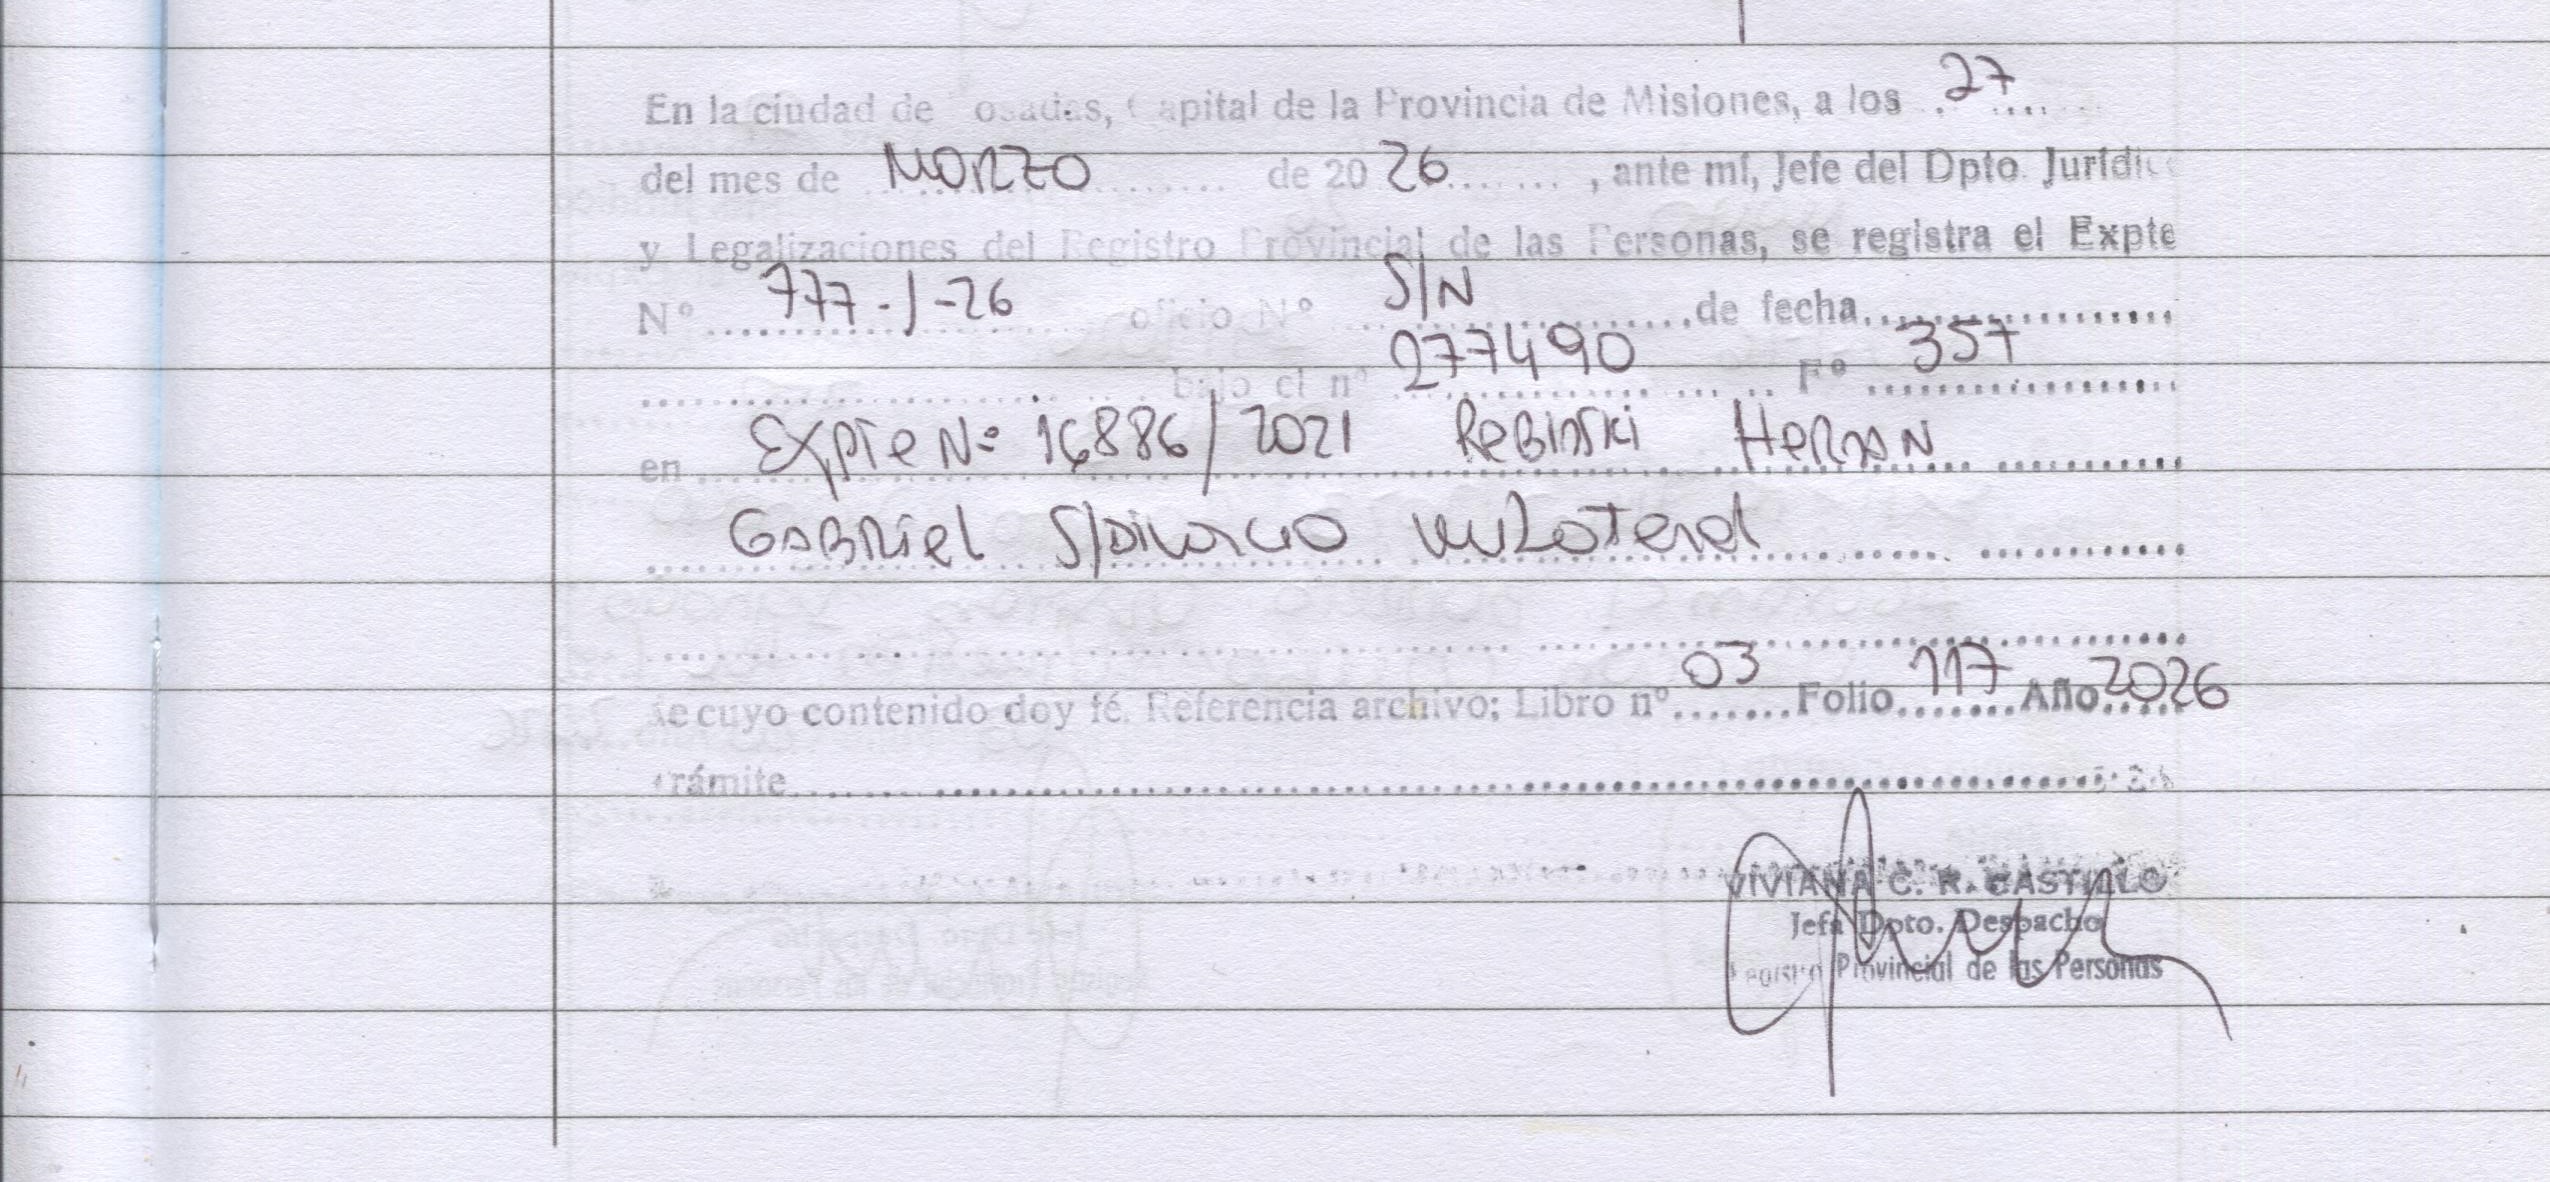 En la ciudad de Posadas, Capital de la Provincia de Misiones, a los 27
del mes de MARZO de 2026, ante mí, Jefe del Dpto. Jurídico
y Legalizaciones del Registro Provincial de las Personas, se registra el Expte
N° 777-J-26 oficio N° S/N de fecha
bajo el n° 277490 F° 357
en Expte N° 16886/2021 Rebinski Hernan
Gabriel S/Divorcio unilateral
de cuyo contenido doy fé. Referencia archivo; Libro n° 03 Folio 117 Año 2026
trámite
VIVIANA C. R. CASTILLO
Jefa Dpto. Despacho
Registro Provincial de las Personas